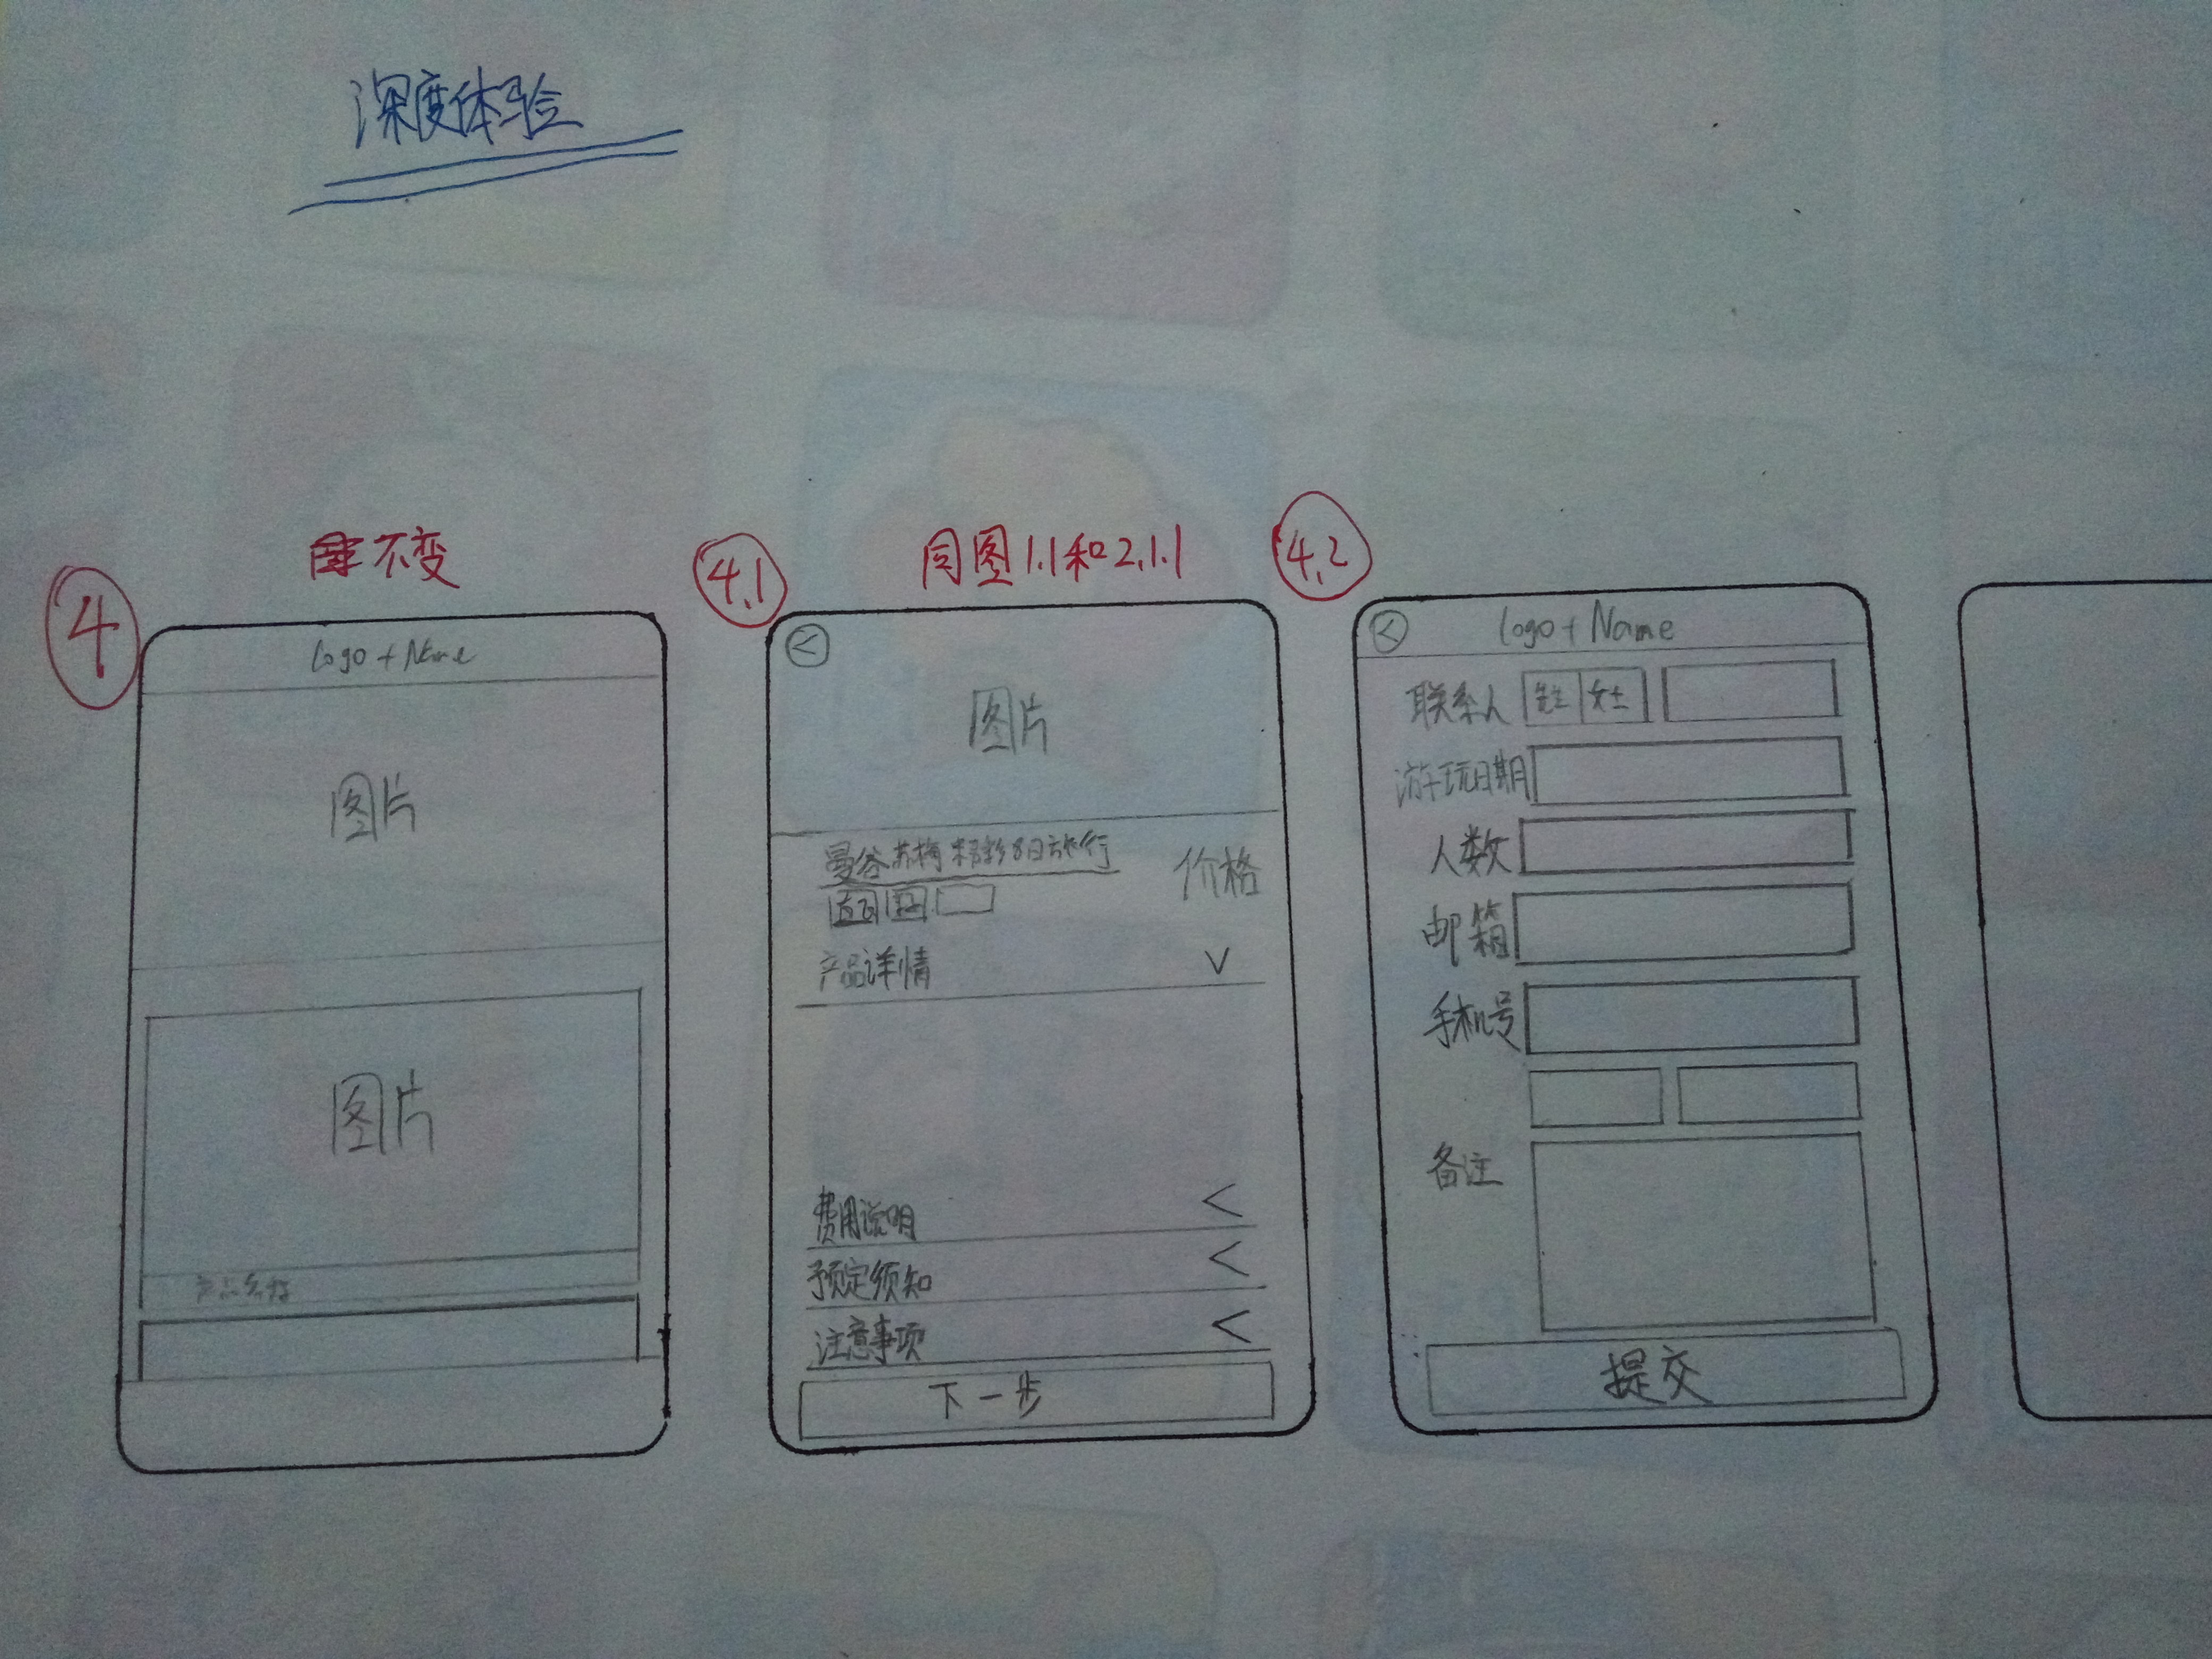 深度体验
4
不变
Logo + Name
图片
图片
产品名称
4.1
同图1.1和2.1.1
<
图片
曼谷 苏梅 精彩8日旅行
价格
产品详情
费用说明
预定须知
注意事项
下一步
4.2
<
Logo + Name
联系人 先生 女士
游玩日期
人数
邮箱
手机号
备注
提交